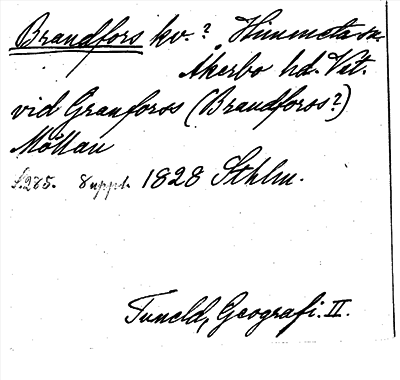 Brandfors kv.? Himmeta sn.
Åkerbo hd. Vstm.
vid Granforos (Brandforos?)
Möllan
S. 285. 8 uppl. 1828 Sthlm.
Tuneld, Geografi. II.